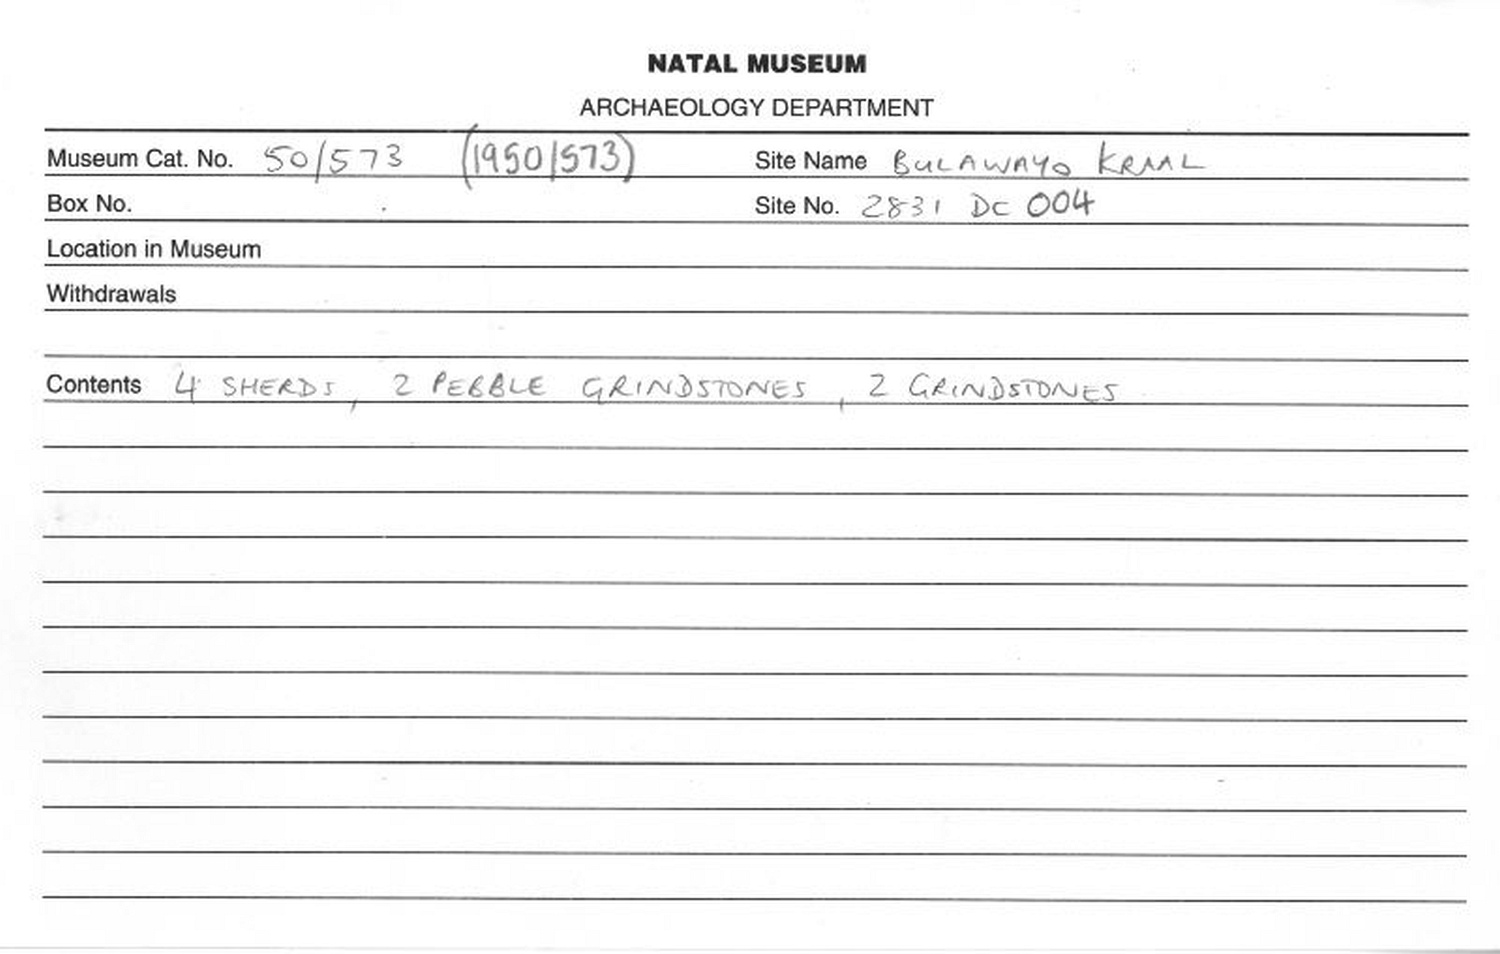 NATAL MUSEUM
ARCHAEOLOGY DEPARTMENT
Museum Cat. No. 50/573 (1950/573) Site Name BULAWAYO KRAAL
Box No. Site No. 2831 DC 004
Location in Museum
Withdrawals
Contents 4 SHERDS, 2 PEBBLE GRINDSTONES, 2 GRINDSTONES